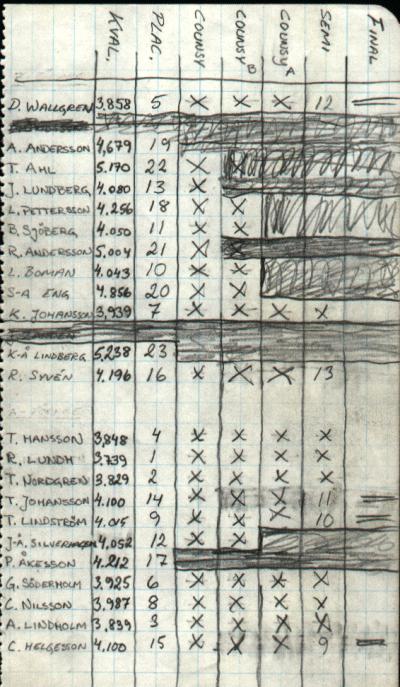 KVAL. PLAC. COUNSY COUNSY B COUNSY A SEMI FINAL
D. WALLGREN 3,858 5 X X X 12 =
A. ANDERSSON 4,679 19 X
T. AHL 5.170 22 X X
J. LUNDBERG 4.080 13 X
L. PETTERSSON 4.256 18 X X
B. SJÖBERG 4.050 11 X X
R. ANDERSSON 5.004 21 X X
L. BOMAN 4.043 10 X X
S-A ENG 4.856 20 X X
K. JOHANSSON 3,939 7 X X X X
K-Å LINDBERG 5,238 23
R. SYVÉN 4.196 16 X X X 13
T. HANSSON 3,848 4 X X X X
R. LUNDH 3.739 1 X X X X
T. NORDGREN 3.829 2 X X X X
T. JOHANSSON 4.100 14 X X X 11 =
T. LINDSTRÖM 4.015 9 X X X 10 =
J-Å. 4,052 12 X X
P. ÅKESSON 4.212 17
G. SÖDERHOLM 3,925 6 X X X X
C. NILSSON 3,987 8 X X X X
A. LINDHOLM 3,839 3 X X X X
C. HELGESSON 4,100 15 X X X 9 =